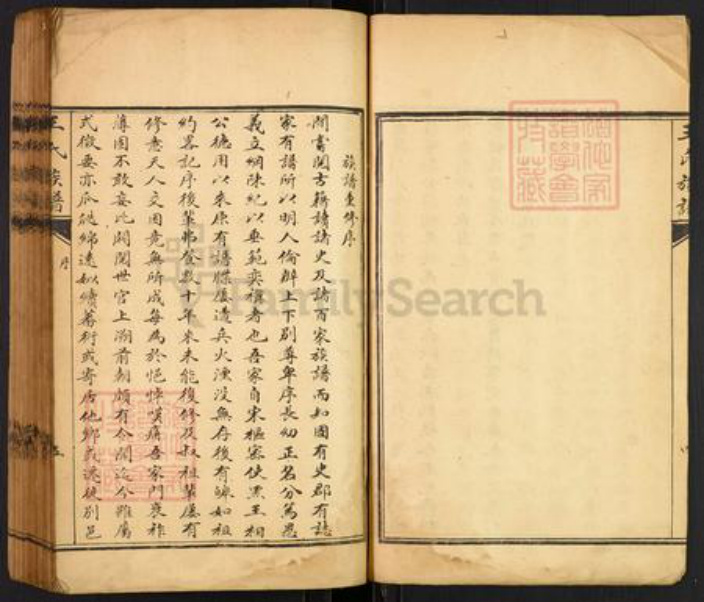 族譜重修序
間嘗閱古籍讀諸史及諸百家族譜而知國有史郡有誌
家有譜所以明人倫辨上下別尊卑序長幼正名分篤恩
義立綱陳紀以垂範奕禩者也吾家自宋樞密使黑王相
公德用以來原有譜牒屢遭兵火湮沒無存後有鯤如祖
約畧記序後輩弗登數十年來未能復修及叔祖輩屢有
修意天人交困竟無所成每為於悒悼嘆痛吾家門衰祚
薄固不敢妄比閥閱世官上溯前朝頗有令聞迄今雖屬
式微要亦瓜瓞綿遠似續蕃衍或寄居他鄉或遷徙別邑
王氏族譜
序
王氏族譜
FamilySearch